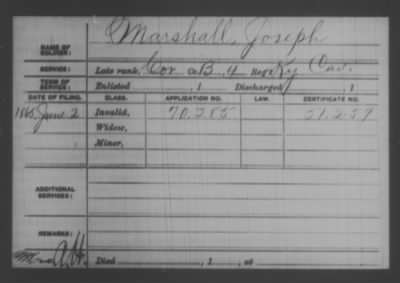 NAME OF SOLDIER: Marshall, Joseph
SERVICE: Late rank, Cor Co. B, 4 Reg't Ky. Cav.
TERM OF SERVICE: Enlisted , 1 Discharged , 1
DATE OF FILING. CLASS. APPLICATION NO. LAW. CERTIFICATE NO.
1865, June 2 Invalid, 70.285 51.259
Widow,
Minor,
ADDITIONAL SERVICES:
REMARKS:
Died , 1 , at